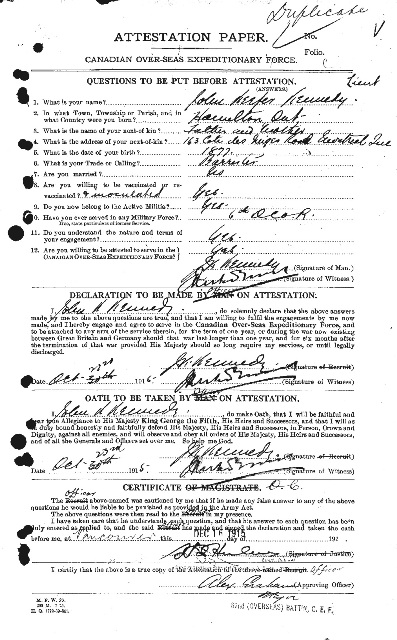 Duplicate
ATTESTATION PAPER.
No.
Folio.
CANADIAN OVER-SEAS EXPEDITIONARY FORCE.
Lieut
QUESTIONS TO BE PUT BEFORE ATTESTATION.
(ANSWERS)
1. What is your name? John Keefer Kennedy.
2. In what Town, Township or Parish, and in what Country were you born? Hamilton Ont.
3. What is the name of your next-of-kin? Father and Mother
4. What is the address of your next-of-kin? 163 Cote des Neiges Road Montreal Que
5. What is the date of your birth? 1877
6. What is your Trade or Calling? Barrister
7. Are you married? Yes
8. Are you willing to be vaccinated or re-vaccinated? & inoculated Yes.
9. Do you now belong to the Active Militia? Yes
10. Have you ever served in any Military Force? 6th D.C.O.R.
If so, state particulars of former Service.
11. Do you understand the nature and terms of your engagement? Yes.
12. Are you willing to be attested to serve in the CANADIAN OVER-SEAS EXPEDITIONARY FORCE? Yes.
Kennedy (Signature of Man).
(Signature of Witness)
DECLARATION TO BE MADE BY MAN ON ATTESTATION.
I, John K Kennedy, do solemnly declare that the above answers
made by me to the above questions are true, and that I am willing to fulfil the engagements by me now
made, and I hereby engage and agree to serve in the Canadian Over-Seas Expeditionary Force, and
to be attached to any arm of the service therein, for the term of one year, or during the war now existing
between Great Britain and Germany should that war last longer than one year, and for six months after
the termination of that war provided His Majesty should so long require my services, or until legally
discharged.
Kennedy (Signature of Recruit)
Date Oct 1915. (Signature of Witness)
OATH TO BE TAKEN BY MAN ON ATTESTATION.
I, John K Kennedy, do make Oath, that I will be faithful and
bear true Allegiance to His Majesty King George the Fifth, His Heirs and Successors, and that I will as
in duty bound honestly and faithfully defend His Majesty, His Heirs and Successors, in Person, Crown and
Dignity, against all enemies, and will observe and obey all orders of His Majesty, His Heirs and Successors,
and of all the Generals and Officers set over me. So help me God.
Kennedy (Signature of Recruit)
Date Oct 1915. (Signature of Witness)
CERTIFICATE OF MAGISTRATE. O.C.
officer
The Recruit above-named was cautioned by me that if he made any false answer to any of the above
questions he would be liable to be punished as provided in the Army Act.
The above questions were then read to the Recruit in my presence.
I have taken care that he understands each question, and that his answer to each question has been
duly entered as replied to, and the said Recruit has made and signed the declaration and taken the oath
before me, at Vancouver this DEC 16 1915 day of 191
(Signature of Justice)
I certify that the above is a true copy of the Attestation of the above-named Recruit. officer
(Approving Officer)
Major
(OVERSEAS) BATT'N, C. E. F.
M. F. W. 23.